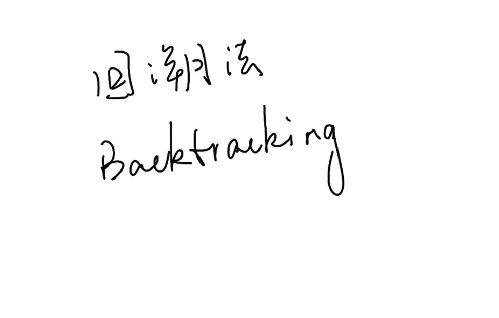 回溯法
Backtracking